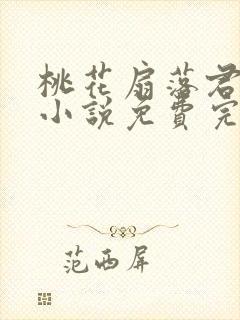 桃花扇落君
小說免費完
范西屏